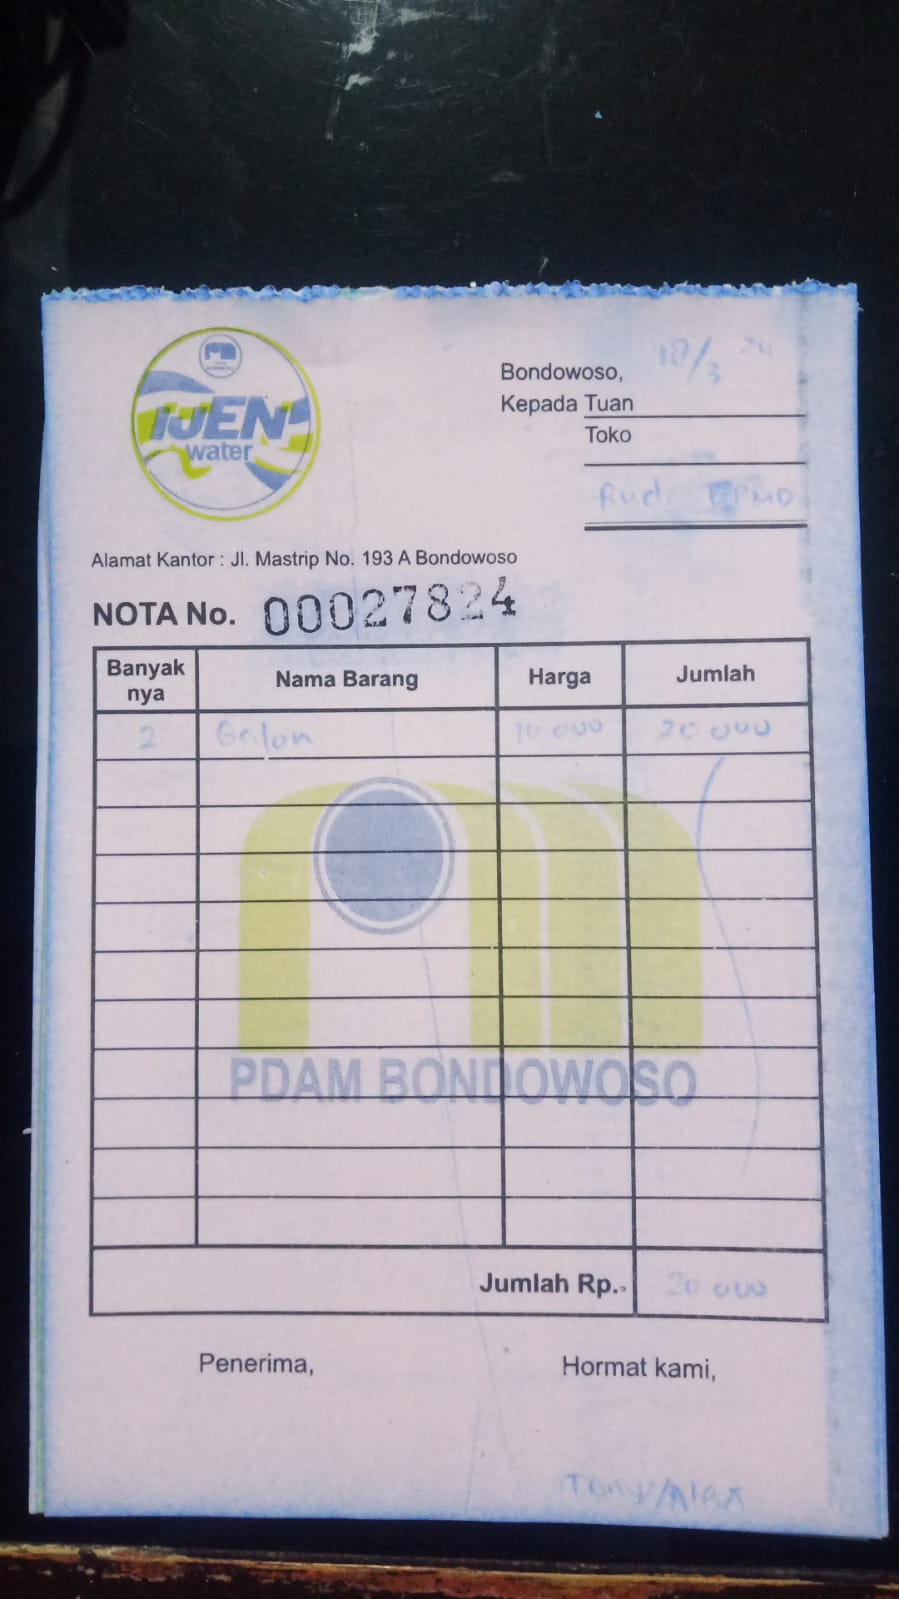 IJEN
water
Bondowoso, 18/3 24
Kepada Tuan
Toko
Rudi BPMD
Alamat Kantor : Jl. Mastrip No. 193 A Bondowoso
NOTA No. 00027824
Banyak nya Nama Barang Harga Jumlah
2 Galon 10 000 20 000
PDAM BONDOWOSO
Jumlah Rp.- 20 000
Penerima, Hormat kami,
Tony/Alex